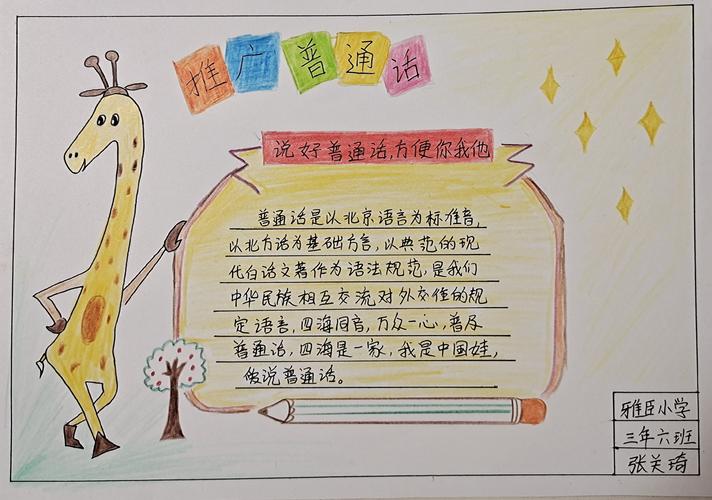 推广普通话
说好普通话,方便你我他
普通话是以北京语言为标准音,
以北方话为基础方言,以典范的现
代白话文著作为语法规范,是我们
中华民族相互交流对外交往的规
定语言,四海同音,万众一心,普及
普通话,四海是一家,我是中国娃,
使说普通话。
雅臣小学
三年六班
张关琦